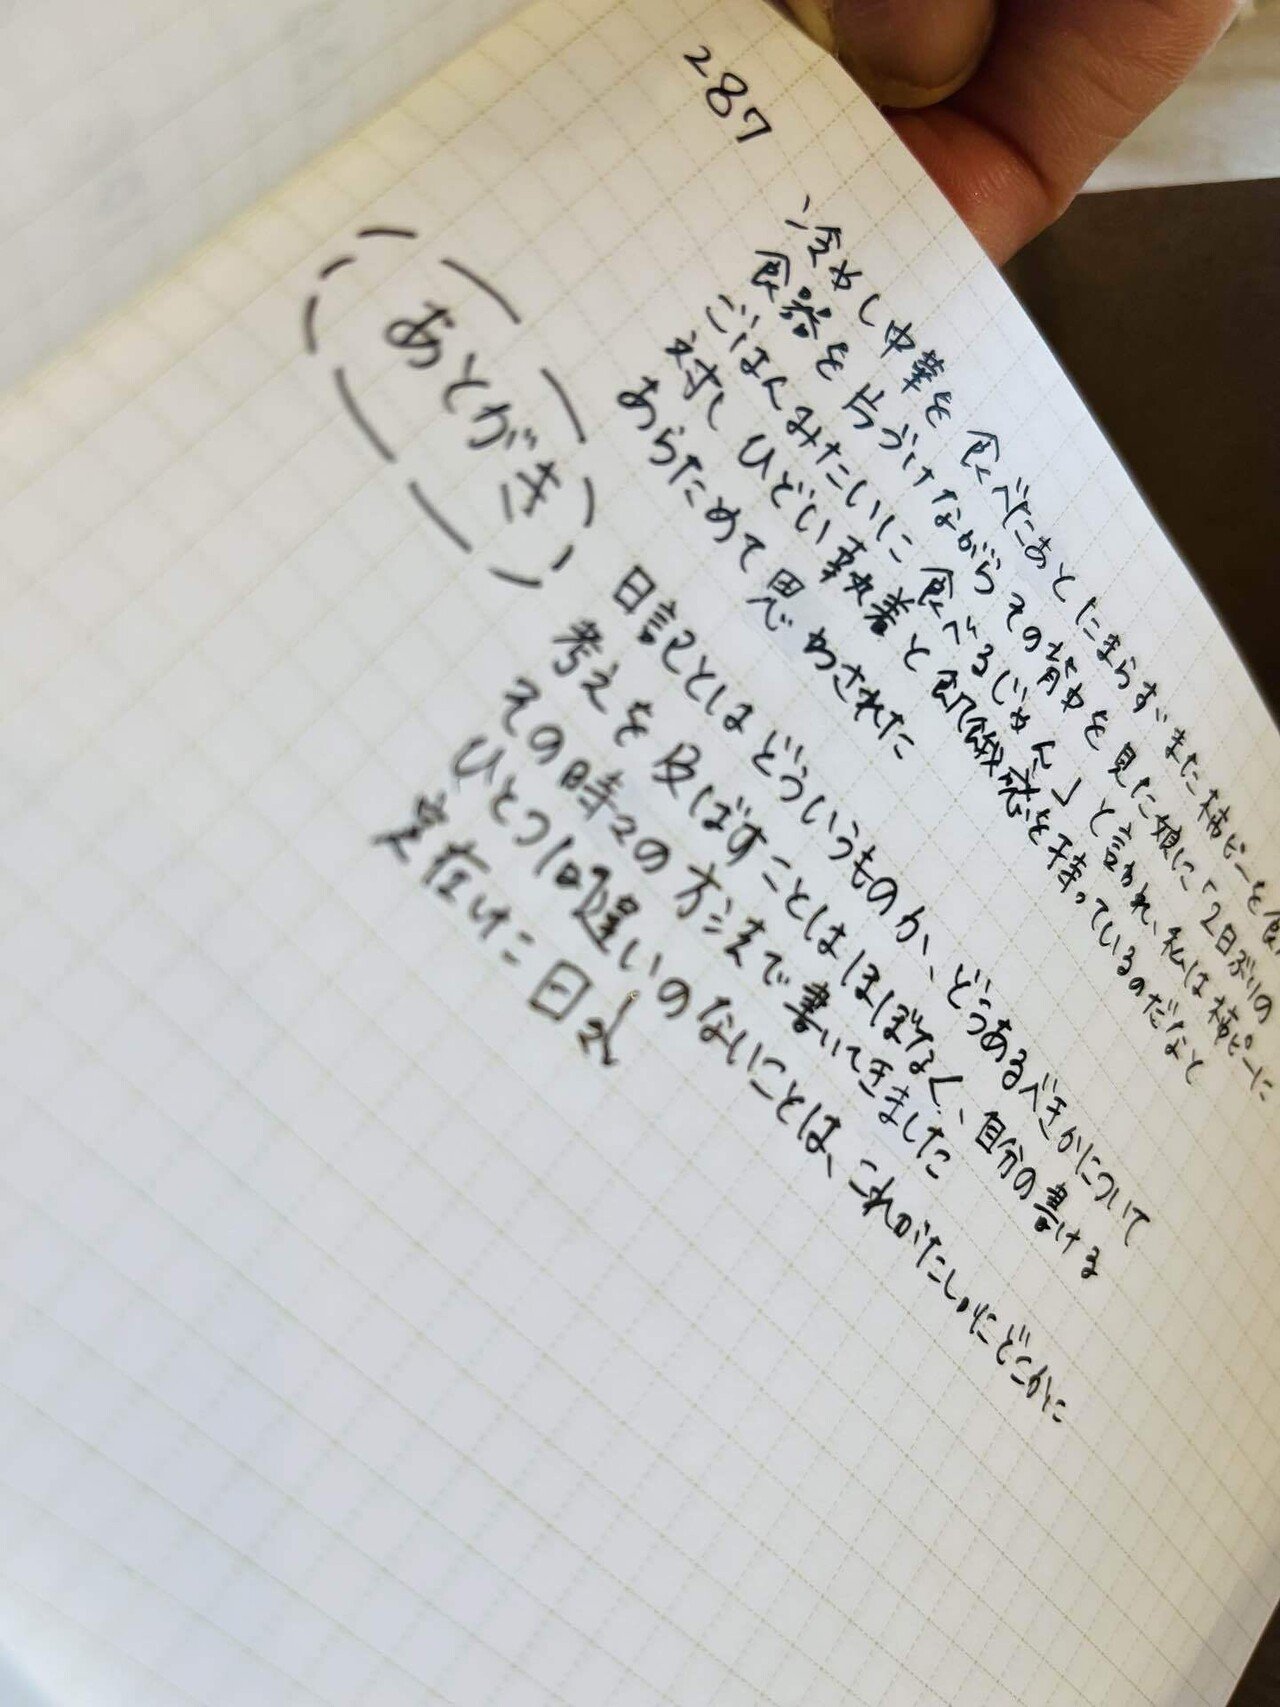 287
冷やし中華を食べたあとたまらずまた柿ピーを食
食器を片づけながらその背中を見た娘に「2日ぶりの
ごはんみたいに食べるじゃん」と言われ、私は柿ピーに
対しひどい執着と飢餓感を持っているのだなと
あらためて思わされた
あとがき
日記とはどういうものか、どうあるべきかについて
考えを及ばすことはほぼなく、自分の書ける
その時々の方法で書いてきました
ひとつ間違いのないことは、これがたしかにどこかに
実在した日